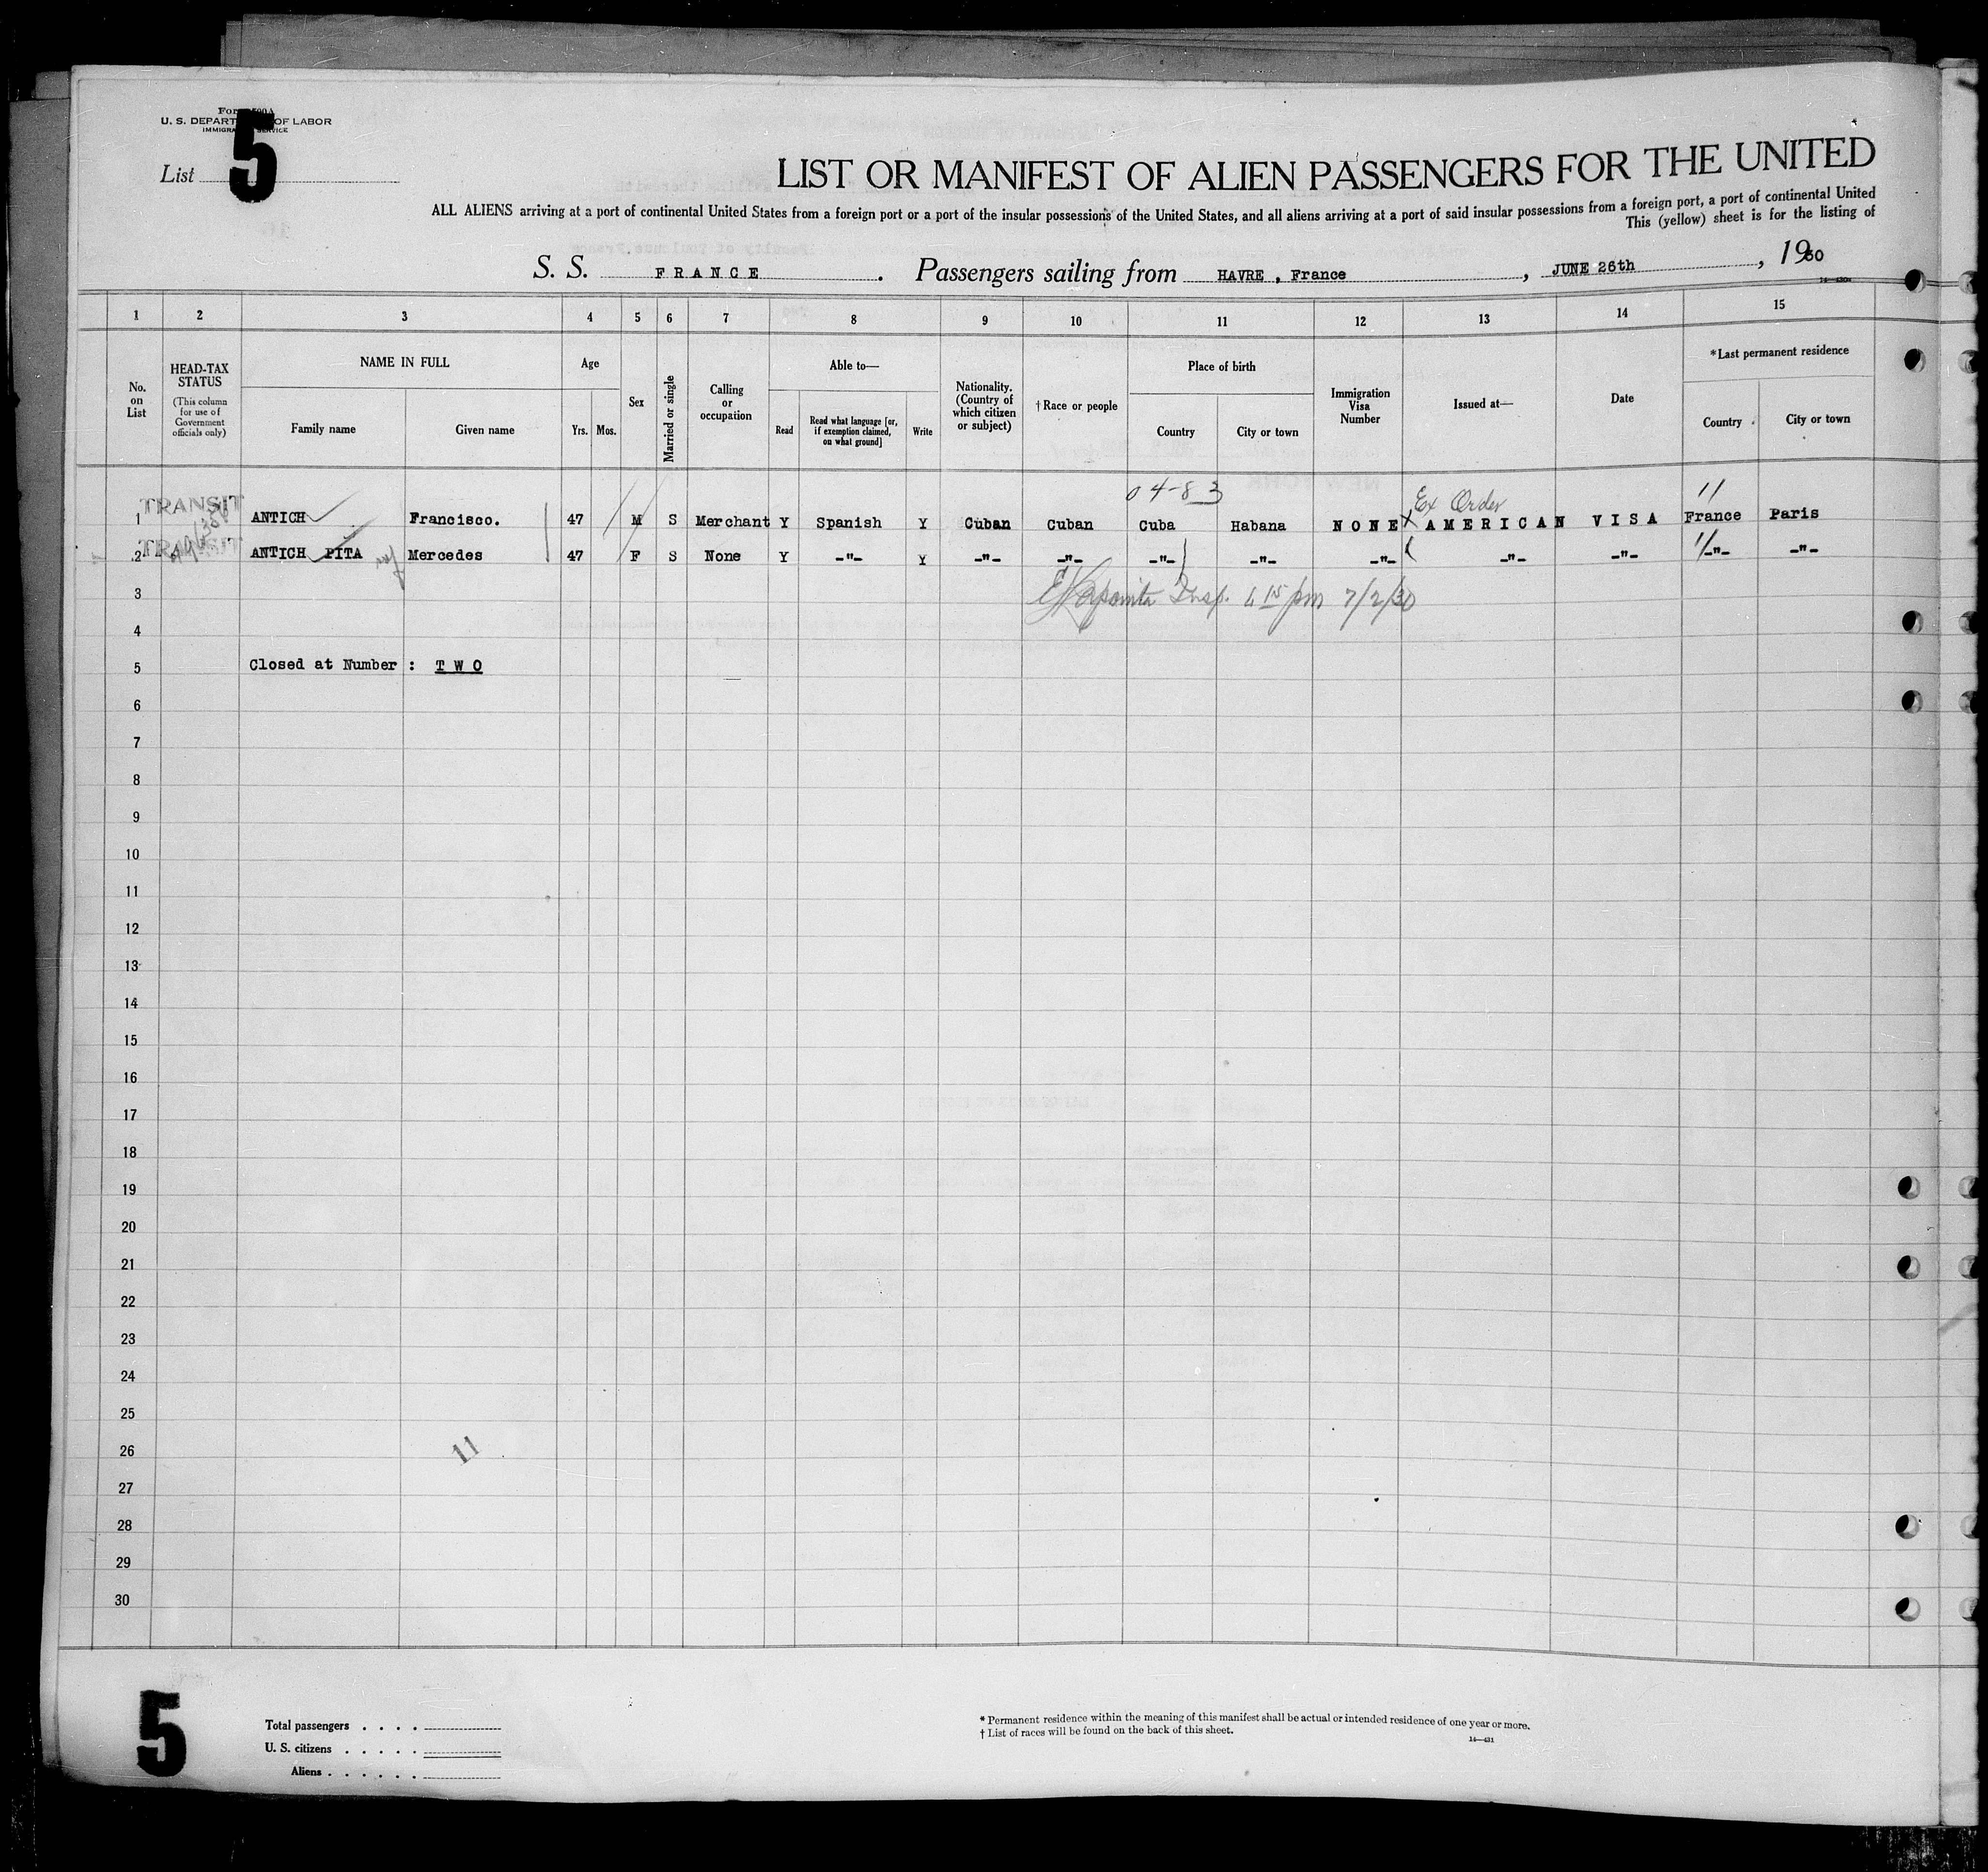 Form 500A
U. S. DEPARTMENT OF LABOR
IMMIGRATION SERVICE
List 5
LIST OR MANIFEST OF ALIEN PASSENGERS FOR THE UNITED
ALL ALIENS arriving at a port of continental United States from a foreign port or a port of the insular possessions of the United States, and all aliens arriving at a port of said insular possessions from a foreign port, a port of continental United
This (yellow) sheet is for the listing of
S. S. FRANCE . Passengers sailing from HAVRE , France , JUNE 26th , 1930
1 2 3 4 5 6 7 8 9 10 11 12 13 14 15
No. on List
HEAD-TAX STATUS
(This column for use of Government officials only)
NAME IN FULL
Family name
Given name
Age
Yrs. Mos.
Sex
Married or single
Calling or occupation
Able to—
Read
Read what language [or, if exemption claimed, on what ground]
Write
Nationality. (Country of which citizen or subject)
† Race or people
Place of birth
Country
City or town
Immigration Visa Number
Issued at—
Date
*Last permanent residence
Country
City or town
04-83
Ex Order
11
TRANSIT
1 ANTICH Francisco. 47 M S Merchant Y Spanish Y Cuban Cuban Cuba Habana NONE AMERICAN VISA France Paris
TRANSIT
2 ANTICH PITA Mercedes 47 F S None Y -"- Y -"- -"- -"- -"- -"- -"- -"- -"- -"-
3 Insp. 6 15 pm 7/2/30
4
5 Closed at Number : TWO
6
7
8
9
10
11
12
13
14
15
16
17
18
19
20
21
22
23
24
25
26
11
27
28
29
30
5
Total passengers . . . .
U. S. citizens . . . . .
Aliens . . . . . .
* Permanent residence within the meaning of this manifest shall be actual or intended residence of one year or more.
† List of races will be found on the back of this sheet.
14—431